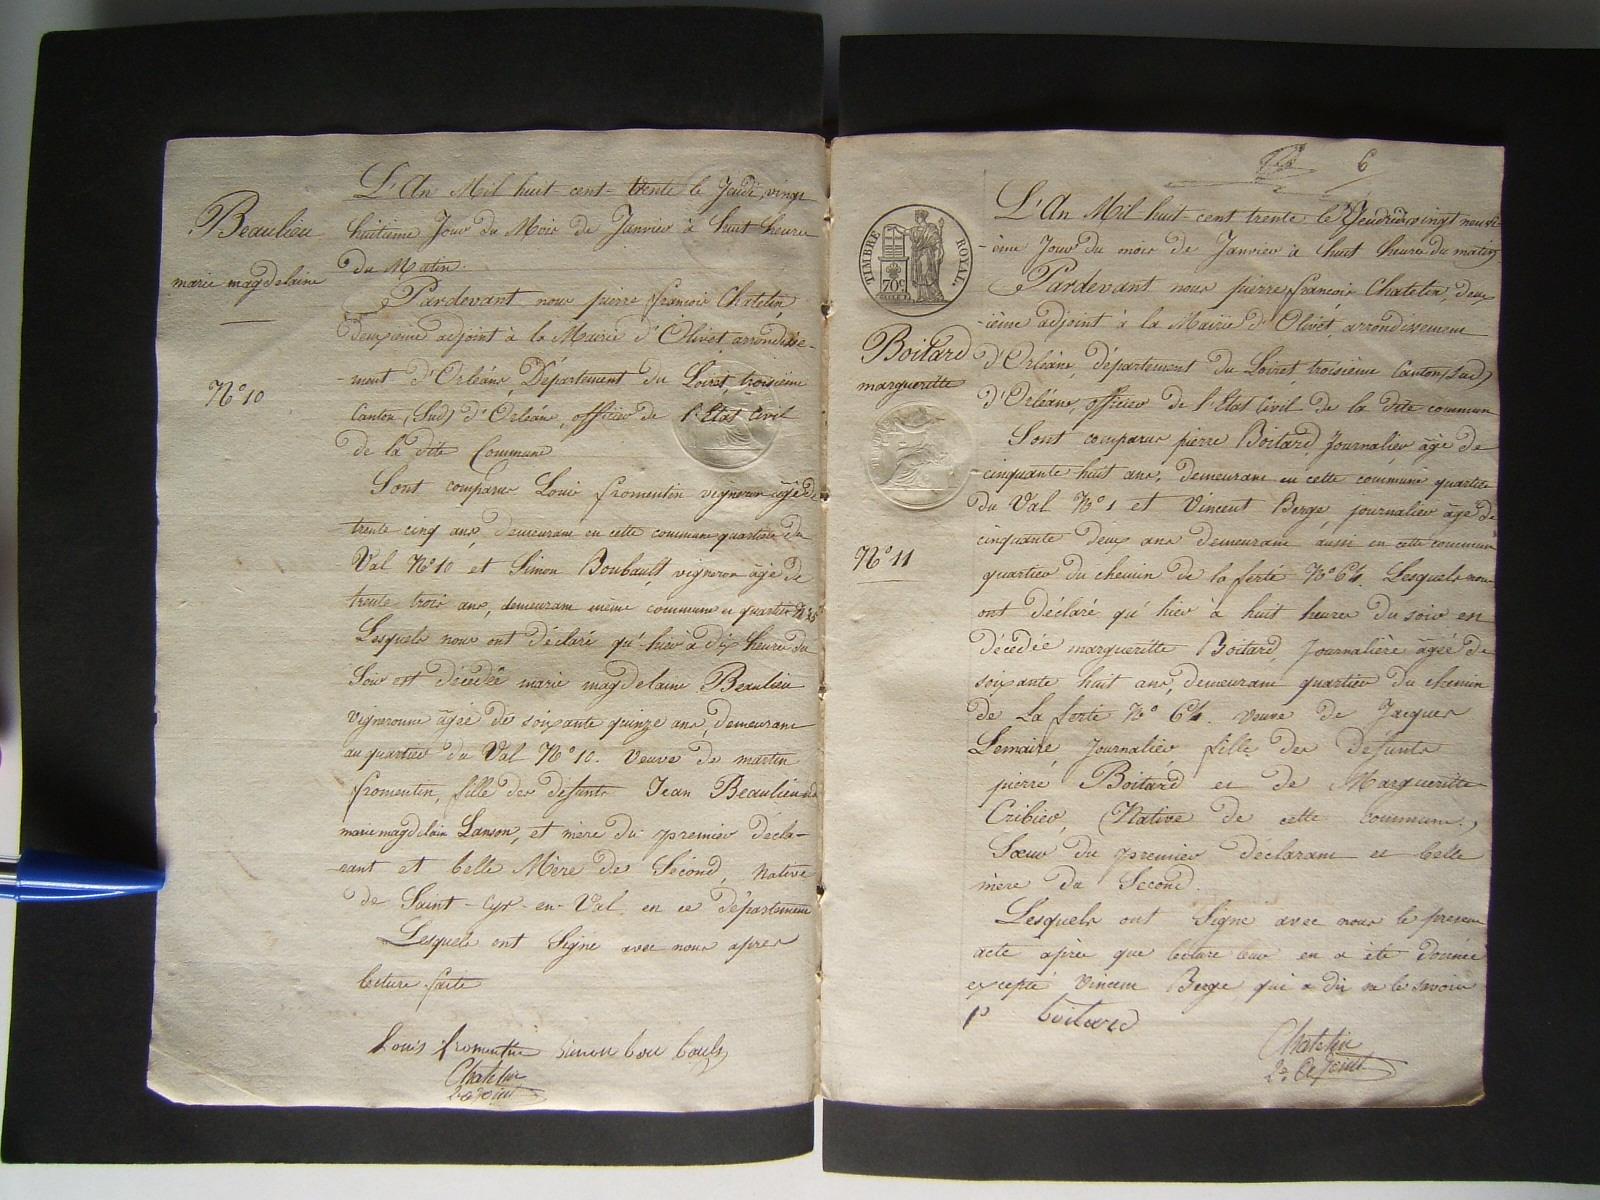 Beaulieu
marie magdelaine
N° 10
L'An Mil huit cent trente le Jeudi vingt
huitieme Jour du Mois de Janvier à huit heures
du Matin.
Pardevant nous pierre françois Chatelin,
deuxieme adjoint à la Mairie d'Olivet arrondisse-
-ment d'Orléans, Département du Loiret, troisieme
Canton (Sud) d'Orléans, officier de l'Etat Civil
de la dite Commune
Sont comparus Louis fromentin vigneron âgé de
trente cinq ans, demeurant en cette commune quartier du
Val N° 10 et Simon Boubault vigneron âgé de
trente trois ans, demeurant même commune et quartier
Lesquels nous ont déclaré qu'hier à dix heures du
Soir est décédée marie magdelaine Beaulieu
vigneronne âgée de soixante quinze ans, demeurant
au quartier du Val N° 10. veuve de martin
fromentin, fille des defunts Jean Beaulieu et de
marie magdelain Lanson, et mère du premier décla-
-rant et belle Mère de Second, native
de Saint-Cyr-en-Val en ce département
Lesquels ont Signe avec nous apres
lecture faite
Louis fromentin Simon bou bault
Chatelin
2e adjoint
6
TIMBRE ROYAL
70c
Boitard
margueritte
N° 11
L'An Mil huit cent trente le Vendredi vingt neuvi-
-ème Jour du mois de Janvier à huit heures du matin
Pardevant nous pierre françois Chatelin, deux
-ième adjoint à la Mairie d'Olivet, arrondissement
d'Orléans, département du Loiret, troisieme Canton (Sud)
d'Orléans, officier de l'Etat Civil de la dite commune
Sont comparus pierre Boitard, Journalier âgé de
cinquante huit ans, demeurant en cette commune quartier
du Val N° 1 et Vincent Berge, journalier âgé de
cinquante deux ans demeurant aussi en cette commune
quartier du chemin de la ferté N° 64. Lesquels nous
ont déclaré qu'hier à huit heures du soir en
décédée margueritte Boitard, Journalière âgée de
soixante huit ans, demeurant quartier du chemin
de La ferté N° 64. veuve de Jacques
Lemaire Journalier fille des Defunts
pierre Boitard et de Marguerite
Cribier, (Native de cette commune.)
Soeur du premier declarant et belle
mère du Second.
Lesquels ont Signe avec nous le present
acte après que lecture leur en a été donnée
excepté Vincent Berge qui a dit ne le savoir
P boitard
Chatelin
2e adjoint